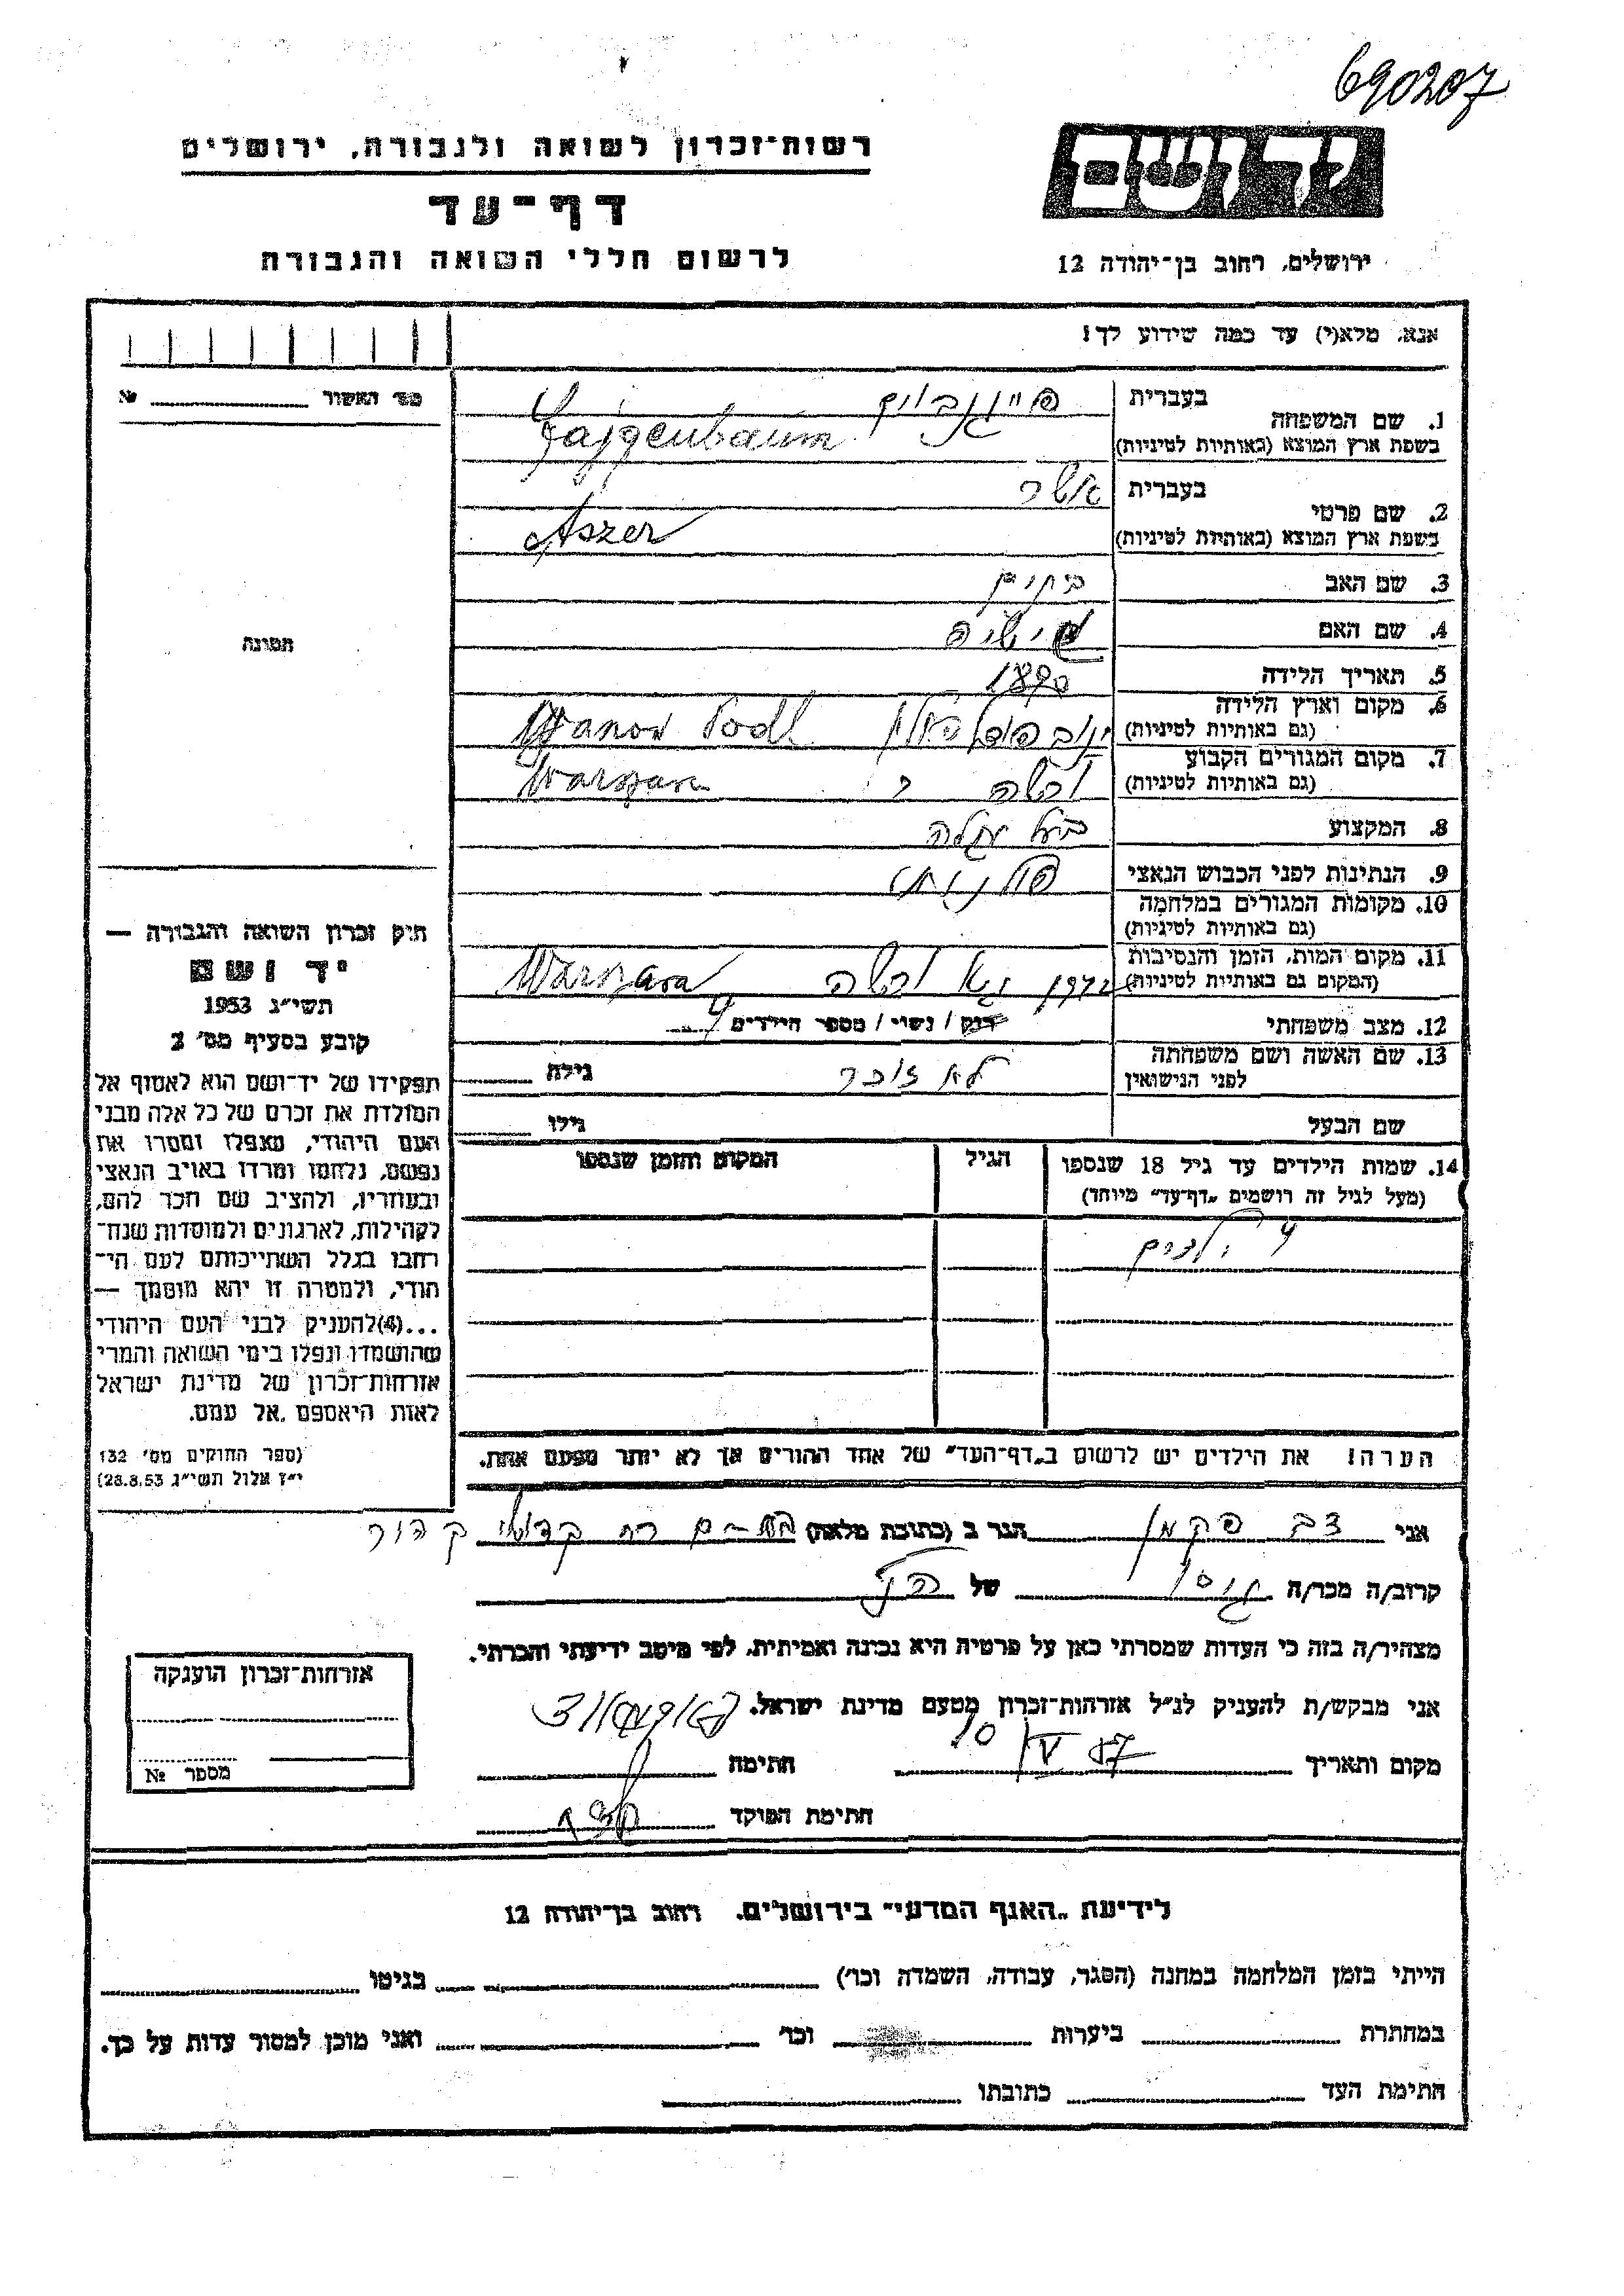 690207
רשות־זכרון לשואה ולגבורה, ירושלים
דף־עד
לרשום חללי השואה והגבורה
יד ושם
ירושלים, רחוב בן־יהודה 12
אנא, מלא(י) עד כמה שידוע לך!
מס' האשור № 
1. שם המשפחה בעברית פייגנבוים
בשפת ארץ המוצא (באותיות לטיניות) Fajgenbaum
2. שם פרטי בעברית אשר
בשפת ארץ המוצא (באותיות לטיניות) Aszer
3. שם האב
4. שם האם
5. תאריך הלידה 1890
6. מקום וארץ הלידה
(גם באותיות לטיניות) Janow Podl
7. מקום המגורים הקבוע
(גם באותיות לטיניות) ורשה Warszawa
8. המקצוע
9. הנתינות לפני הכבוש הנאצי פולנית
10. מקומות המגורים במלחמה
(גם באותיות לטיניות)
11. מקום המות, הזמן והנסיבות
(המקום גם באותיות לטיניות) גטו ורשה Warszawa
12. מצב משפחתי רווק / נשוי / מספר הילדים 4
13. שם האשה ושם משפחתה
לפני הנישואין לא זוכר גילה
שם הבעל גילו
14. שמות הילדים עד גיל 18 שנספו הגיל המקום והזמן שנספו
(מעל לגיל זה רושמים "דף־עד" מיוחד)
4 ילדים
הערה! את הילדים יש לרשום ב"דף־העד" של אחד ההורים אך לא יותר מפעם אחת.
תמונה
חוק זכרון השואה והגבורה —
יד ושם
תשי"ג 1953
קובע בסעיף מס' 2
תפקידו של יד־ושם הוא לאסוף אל
המולדת את זכרם של כל אלה מבני
העם היהודי, שנפלו ומסרו את
נפשם, נלחמו ומרדו באויב הנאצי
ובעוזריו, ולהציב שם וזכר להם,
לקהילות, לארגונים ולמוסדות שנח־
רבו בגלל השתייכותם לעם הי־
הודי, ולמטרה זו יהא מוסמך —
...(4) להעניק לבני העם היהודי
שהושמדו ונפלו בימי השואה והמרי
אזרחות־זכרון של מדינת ישראל
לאות היאספם אל עמם.
(ספר החוקים מס' 132
י"ז אלול תשי"ג 28.8.53)
אני צבי פקמן הגר ב (כתובת מלאה)
קרוב/ה מכר/ה גיסו של הנ"ל
מצהיר/ה בזה כי העדות שמסרתי כאן על פרטיה היא נכונה ואמיתית, לפי מיטב ידיעתי והכרתי.
אני מבקש/ת להעניק לנ"ל אזרחות־זכרון מטעם מדינת ישראל.
מקום ותאריך 10 IV 57 חתימה
חתימת הפוקד
אזרחות־זכרון הוענקה
מספר №
לידיעת "האגף המדעי" בירושלים, רחוב בן־יהודה 12
הייתי בזמן המלחמה במחנה (הסגר, עבודה, השמדה וכו') בגיטו
במחתרת ביערות וכו' ואני מוכן למסור עדות על כך.
חתימת העד כתובתו